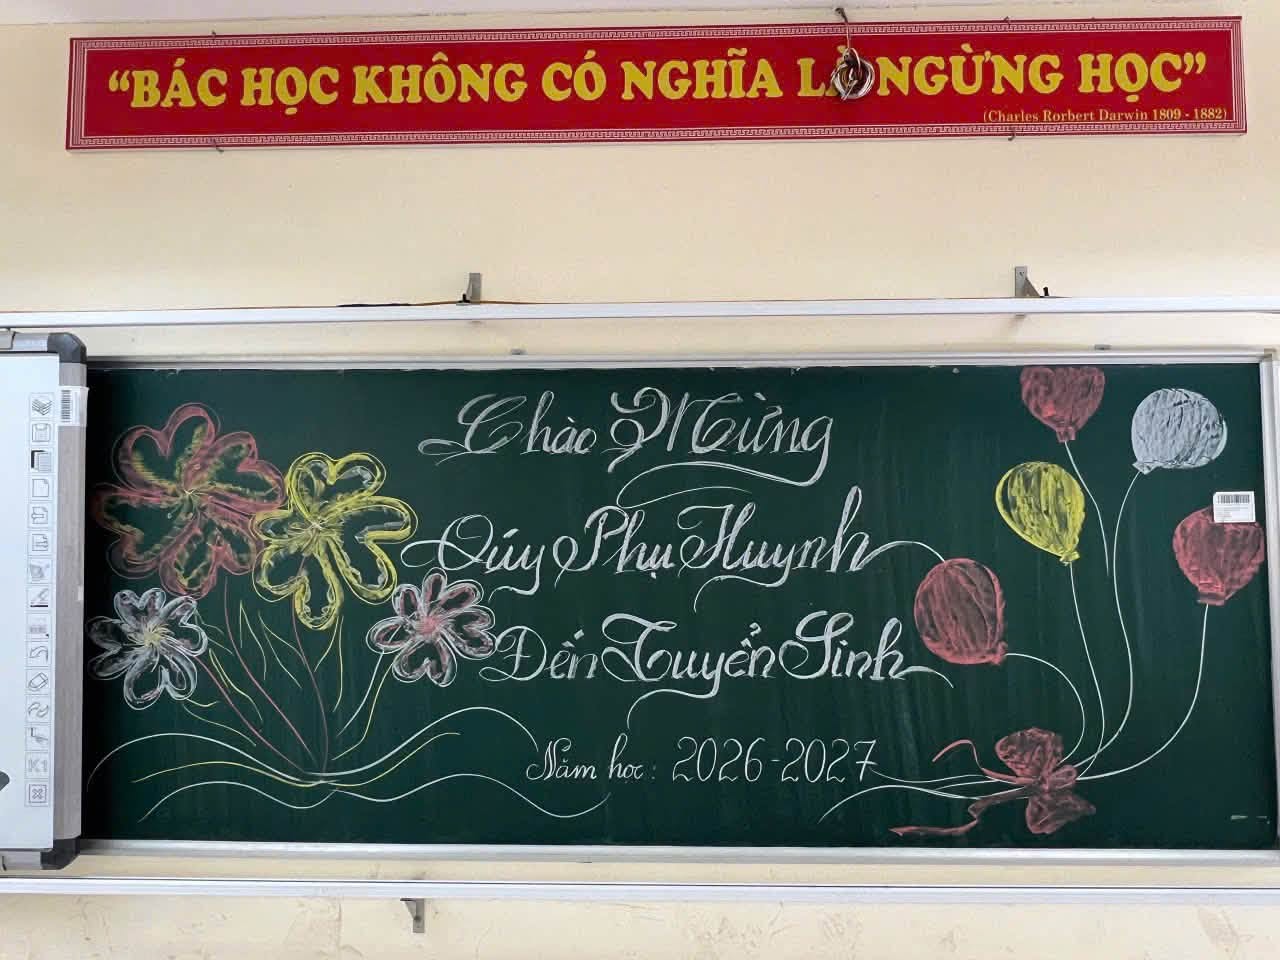 “BÁC HỌC KHÔNG CÓ NGHĨA LÀ NGỪNG HỌC”
(Charles Rorbert Darwin 1809 - 1882)
Chào Mừng
Qúy Phụ Huynh
Đến Tuyển Sinh
Năm học: 2026-2027
K1